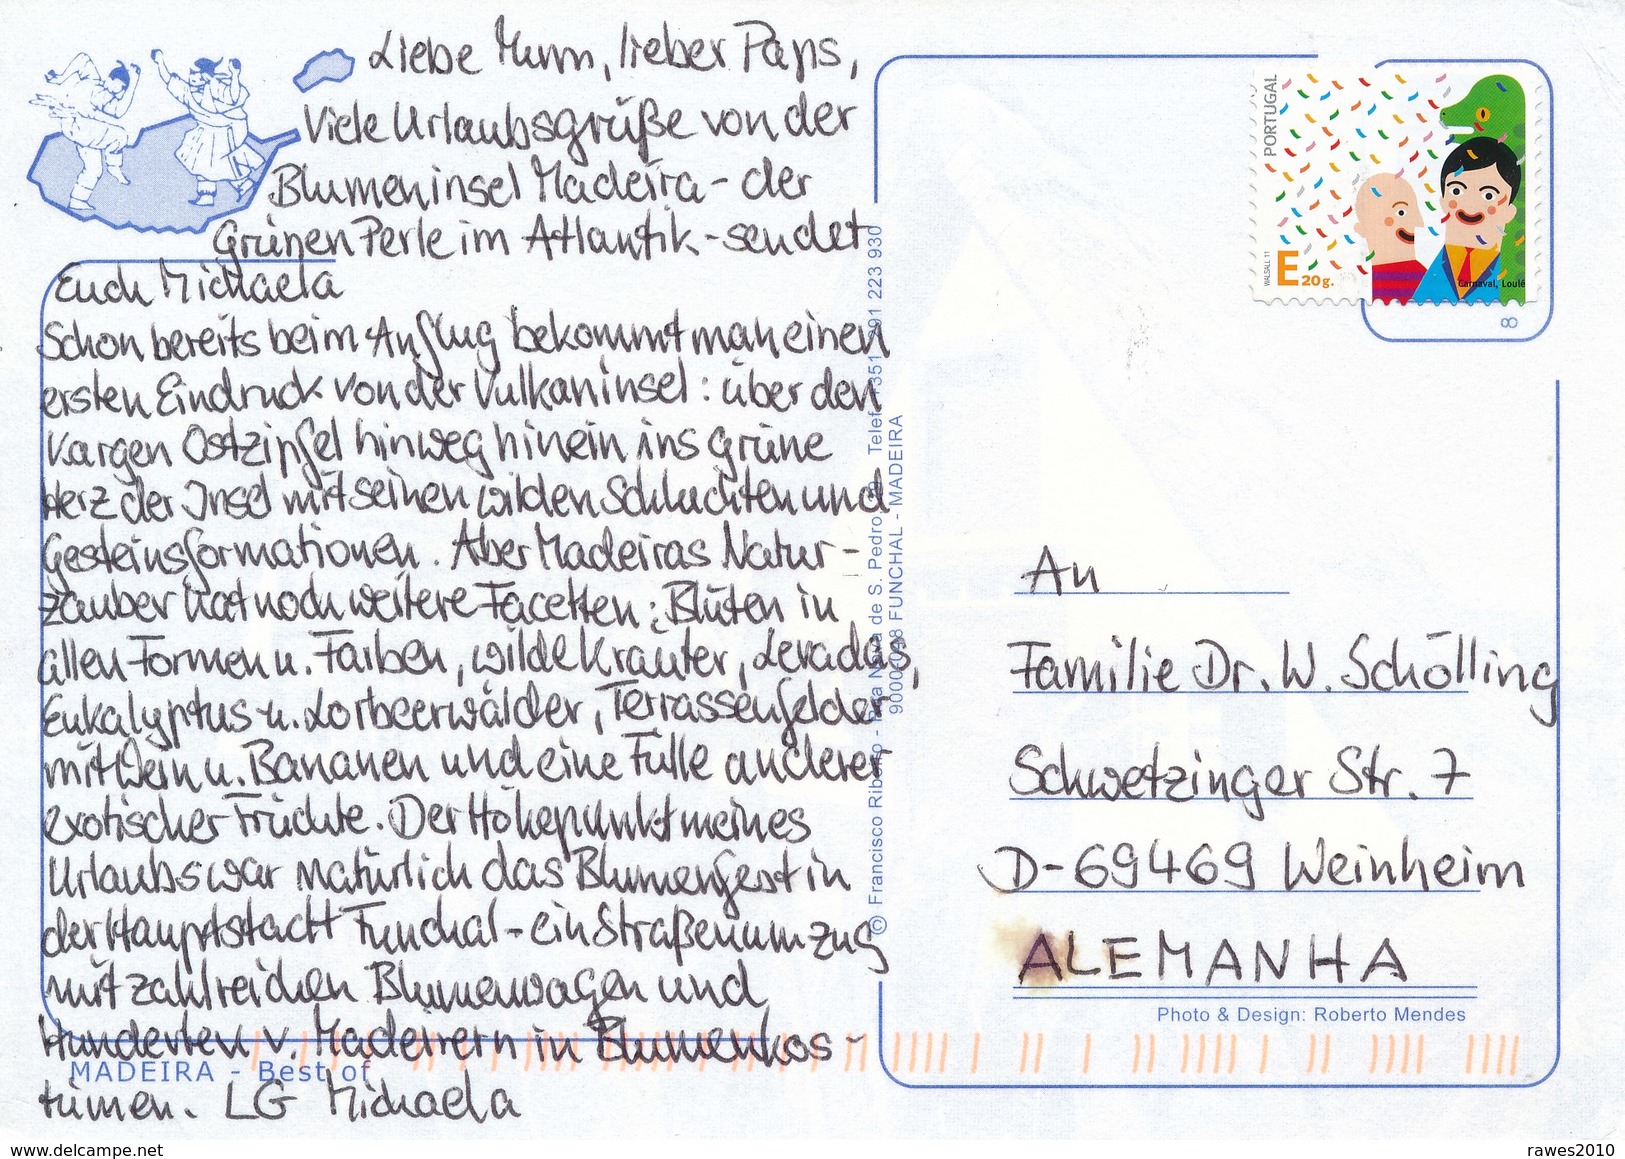 Liebe Mum, lieber Paps,
Viele Urlaubsgrüße von der
Blumeninsel Madeira - der
Grünen Perle im Atlantik - sendet
Euch Michaela
Schon bereits beim Anflug bekommt man einen
ersten Eindruck von der Vulkaninsel: über den
kargen Ostzipfel hinweg hinein ins grüne
Herz der Insel mit seinen wilden Schluchten und
Gesteinsformationen. Aber Madeiras Natur-
zauber hat noch weitere Facetten: Blüten in
allen Formen u. Farben, wilde Kräuter, Levadas,
Eukalyptus u. Lorbeerwälder, Terrassenfelder
mit Wein u. Bananen und eine Fülle anderer
exotischer Früchte. Der Höhepunkt meines
Urlaubs war natürlich das Blumenfest in
der Hauptstadt Funchal - ein Straßenumzug
mit zahlreichen Blumenwagen und
Hunderten v. Madeirern in Blumenkos-
tümen. LG Michaela
MADEIRA - Best of
© Francisco Ribeiro - Rua Nova de S. Pedro, Telef. +351 291 223 930
FUNCHAL - MADEIRA
PORTUGAL
WALSALL 11
E 20g.
Carnaval, Loulé
8
An
Familie Dr. W. Schölling
Schwetzinger Str. 7
D-69469 Weinheim
ALEMANHA
Photo & Design: Roberto Mendes
delcampe.net
rawes2010